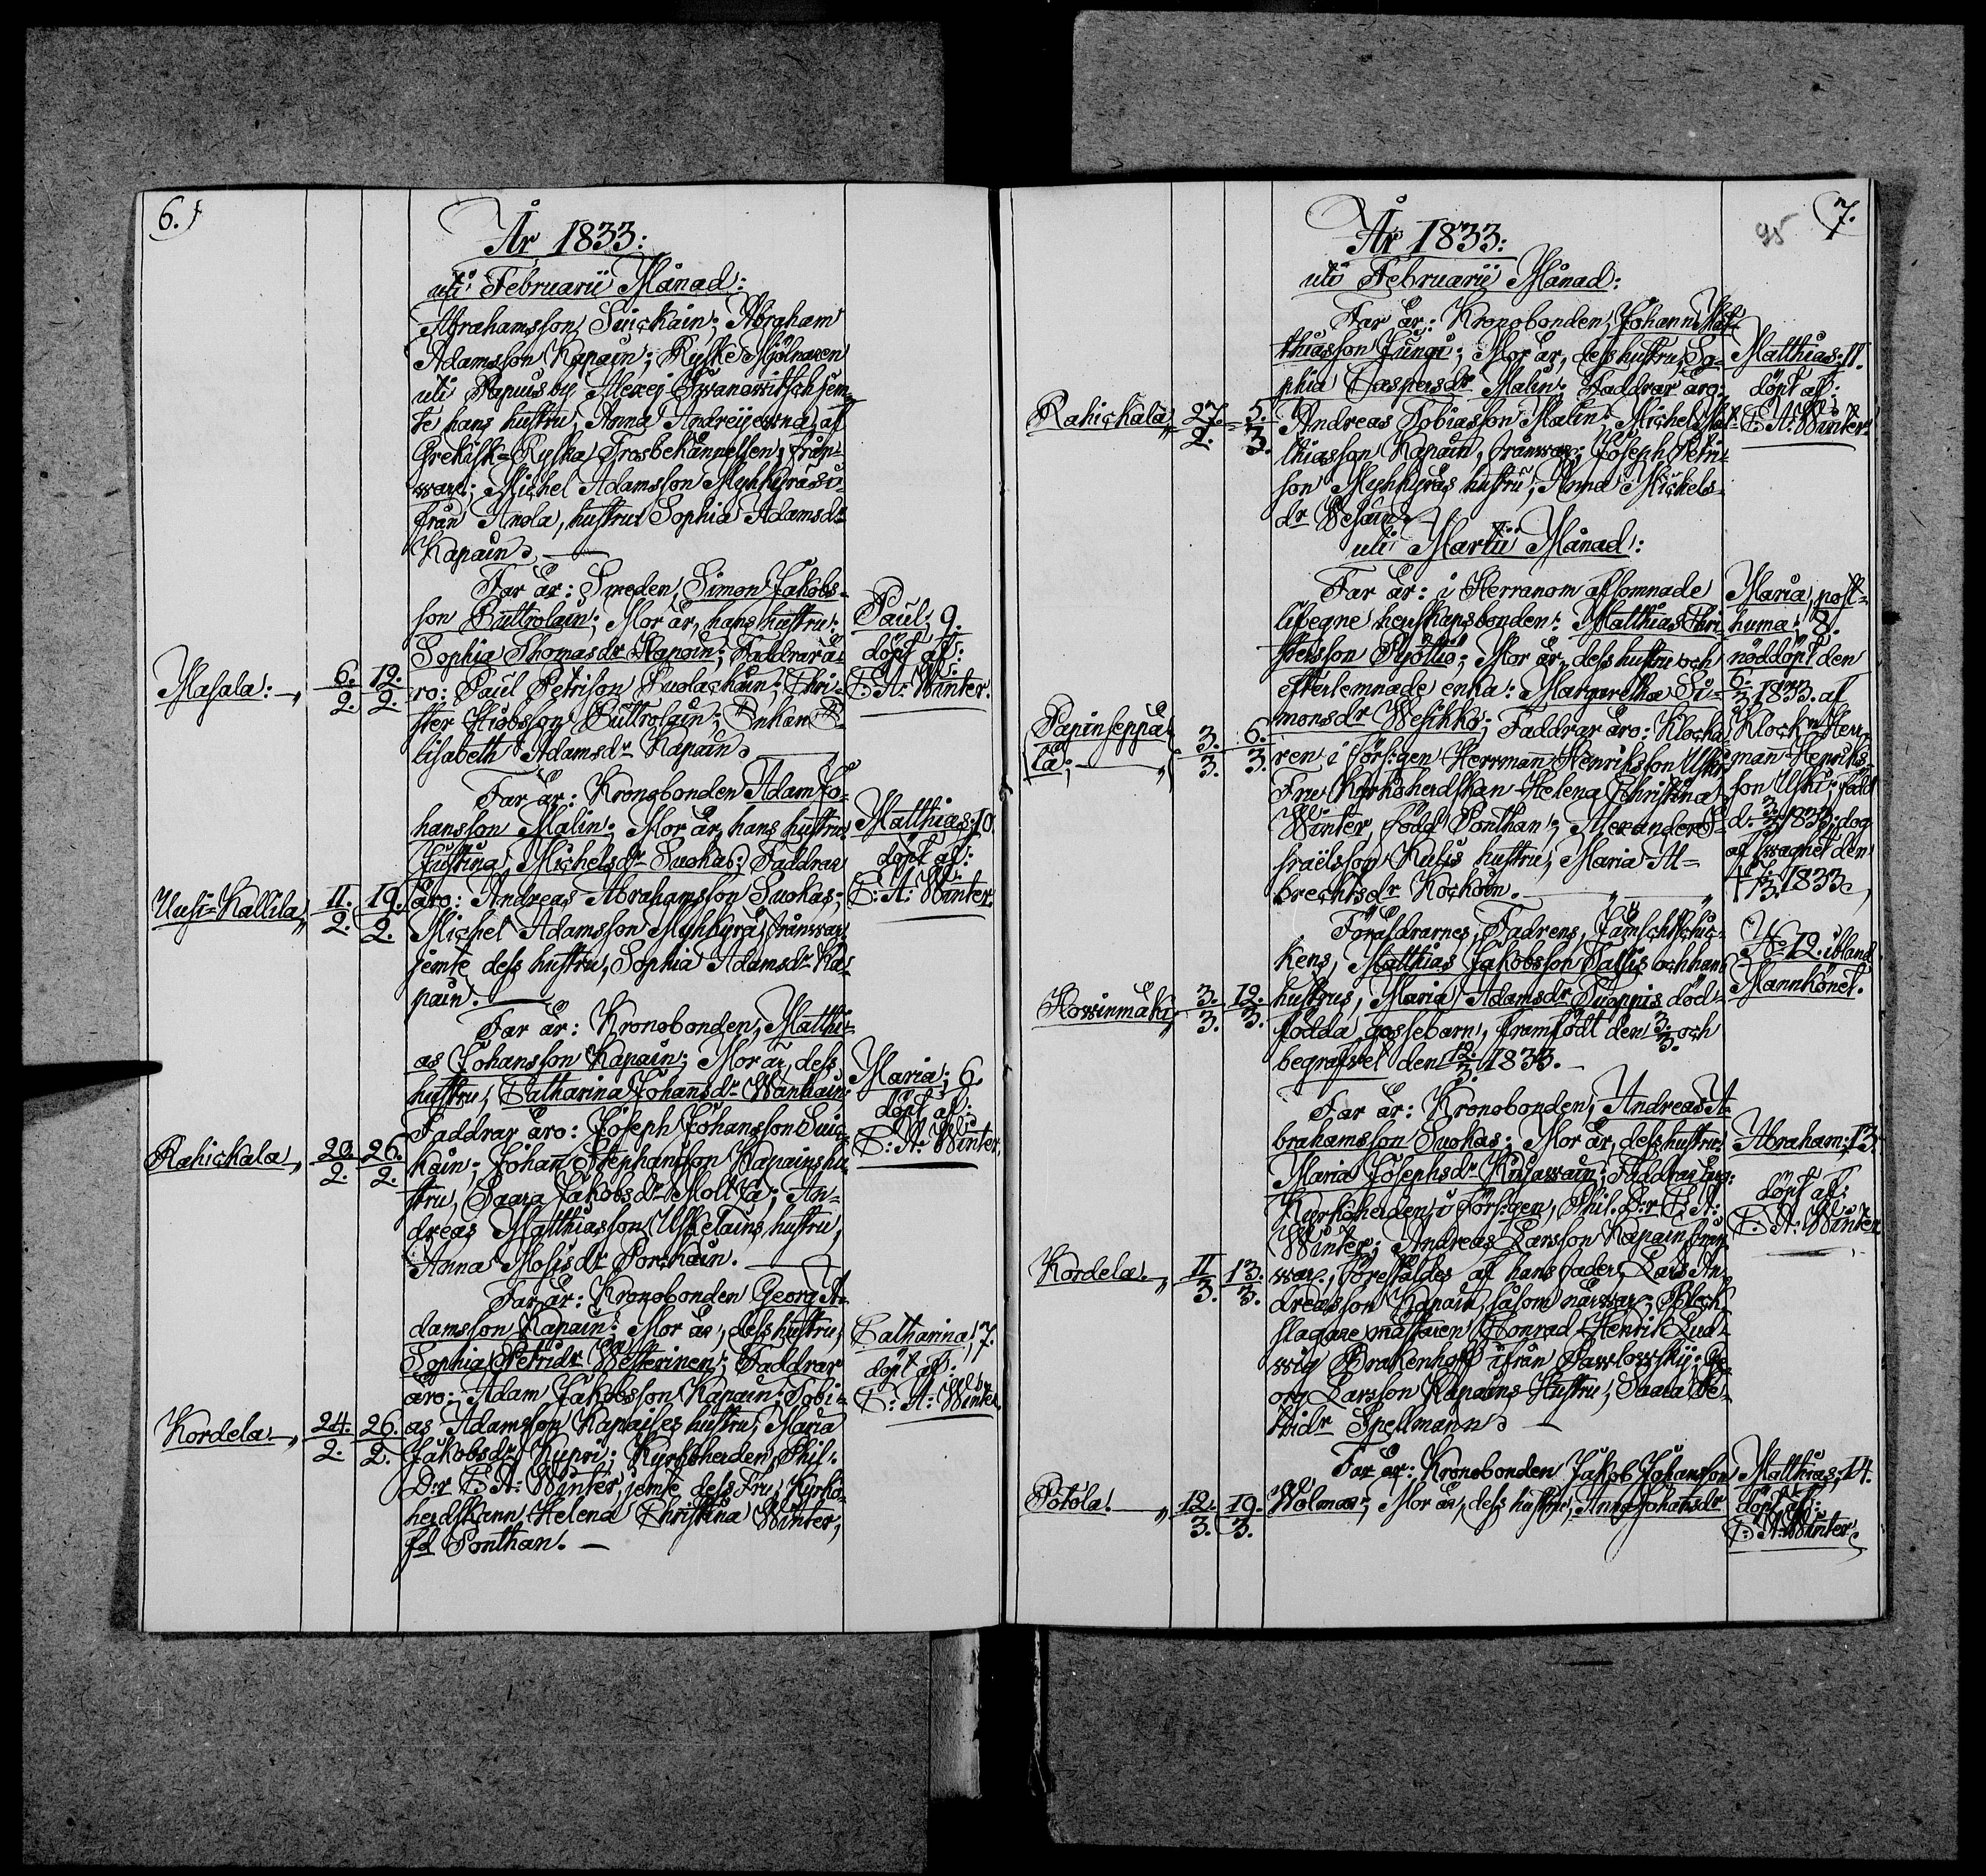 6.
År 1833:
uti Februarii Månad:
Abrahamsson Suickain; Abraham
Adamsson Kapain; Ryske Mjölnaren
uti Papuis by Alexej Iwanowitsch jem-
te hans hustru, Anna Andreijewna, af
Grekisk-Ryska Trosbekännelsen, från-
war.; Michel Adamsson Myhkyräs i-
från Anola, hustru Sophia Adamsdr
Kapain.
Far är: Smeden, Simon Jakobs-
son Buttrolain; Mor är, hans hustru:
Sophia Thomasdr Hapoin; Faddrar ä-
Masala: 6./2. 12./2. ro: Paul Petrison Puolackain; Chri-
ster Hiobsson Buttrolain; Enkan E-
lisabeth Adamsdr Kapain.
Paul; 9.
döpt af:
E: A: Winter.
Far är: Kronobonden Adam Jo-
hansson Malin; Mor är, hans hustru:
Justina Michelsdr Suokas; Faddrar
Uusi-Kallila, 11./2. 19./2. äro: Andreas Abrahamsson Suokas;
Michel Adamsson Myhkyrä, frånwar.
jemte dess hustru, Sophia Adamsdr Ka-
pain.
Matthias; 10.
döpt af:
E: A: Winter.
Far är: Kronobonden, Matthi-
as Johansson Kapain; Mor är, dess
hustru, Catharina Johansdr Wanhain;
Faddrar äro: Joseph Johansson Suic-
Rahickala, 20./2. 26./2. kain; Johan Stephansson Kapains hu-
stru, Saara Jakobsdr Moltta; An-
dreas Matthiasson Uskelains hustru,
Anna Mosisdr Porckain.
Maria; 6.
döpt af:
E: A: Winter.
Far är: Kronobonden Georg A-
damsson Kapain; Mor är, dess hustru,
Sophia Petridr Westerinen; Faddrar
äro: Adam Jakobsson Kapain; Tobi-
Kordela, 24./2. 26./2. as Adamsson Kapaines hustru, Maria
Jakobsdr Kuppri; Kyrkoherden, Phil.
D:r E. A: Winter, jemte dess Fru, Kyrko-
herdskann Helena Christina Winter,
fd Ponthan.
Catharina; 7.
döpt af:
E: A: Winter.
95
7.
År 1833:
uti Februarii Månad:
Far är: Kronobonden, Johann Mat-
thiasson Jungi; Mor är, dess hustru, So-
phia Caspersdr Malin; Faddrar äro:
Rahickala, 27./2. 5./3. Andreas Tobiasson Malin; Michel Mat-
thiasson Kapain, frånwar.; Joseph Petri-
son Myhkyräs hustru, Anna Michels-
dr Wesain.
Matthias; 11.
döpt af:
E: A: Winter.
uti Martii Månad:
Far är: i Herranom afsomnade
lifegne herrskapsbonden: Matthias Chri-
stersson Pyöttiö; Mor är, dess hustru och
efterlemnade enka: Margaretha Si-
monsdr Weshko; Faddrar äro: Klocka-
Papinseppä-
lä, 3./3. 6./3. ren i förs:gen Herrman Henriksson Uski;
Fru Kyrkoherdskan Helena Christina
Winter, född Ponthan; Alexander I-
sraëlsson Kulis hustru, Maria Al-
brechtsdr Kockoin.
Maria, post-
huma; 8.
nöddöpt den
6./3. 1833. af
Klock:n Herr-
man Henriks-
son Uski: född
d. 3/3 1833; dog
af swaghet den
17./3. 1833.
Föräldrarnes, Fadrens, Jämschtschic-
kens, Matthias Jakobsson Tallis och hans
Kowinmäki, 3./3. 12./3. hustrus, Maria Adamsdr Suoppis död-
födda gossebarn, framfödt den 3./3. och
begrafvet den 12./3. 1833.
N:o 12. ibland
Mannkönet.
Far är: Kronobonden, Andreas A-
brahamsson Suokas; Mor är, dess hustru,
Maria Josephsdr Kusawain; Faddrar äro:
Kyrkoherden i förs:gen, Phil. D:r E. A:
Winter; Andreas Larsson Kapain, från-
Kordela, 11/3. 13./3. war., föreställdes af hans fader, Lars An-
dreasson Kapain, såsom närwar.; Bleck-
slagare mästaren Conrad Henrik Lud-
wig Brakenhoff ifrån Pawlowskij; Ge-
org Larsson Kapains Hustru, Saara Pe-
tridr Spellmann.
Abraham; 13.
döpt af:
E: A: Winter.
Far är: Kronobonden Jakob Johansson
Potola, 12./3. 19./3. Wolmar; Mor är, dess hustru, Anna Johansdr
Matthias; 14.
döpt af:
E: A: Winter.